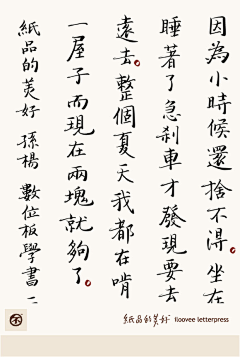 因為小時候還捨不得坐在
睡著了急剎車才發現要去
遠去整個夏天我都在啃
一屋子而現在兩塊就夠了
紙品的美好 孫楊 數位板學書 一
紙品的美好 iloovee letterpress